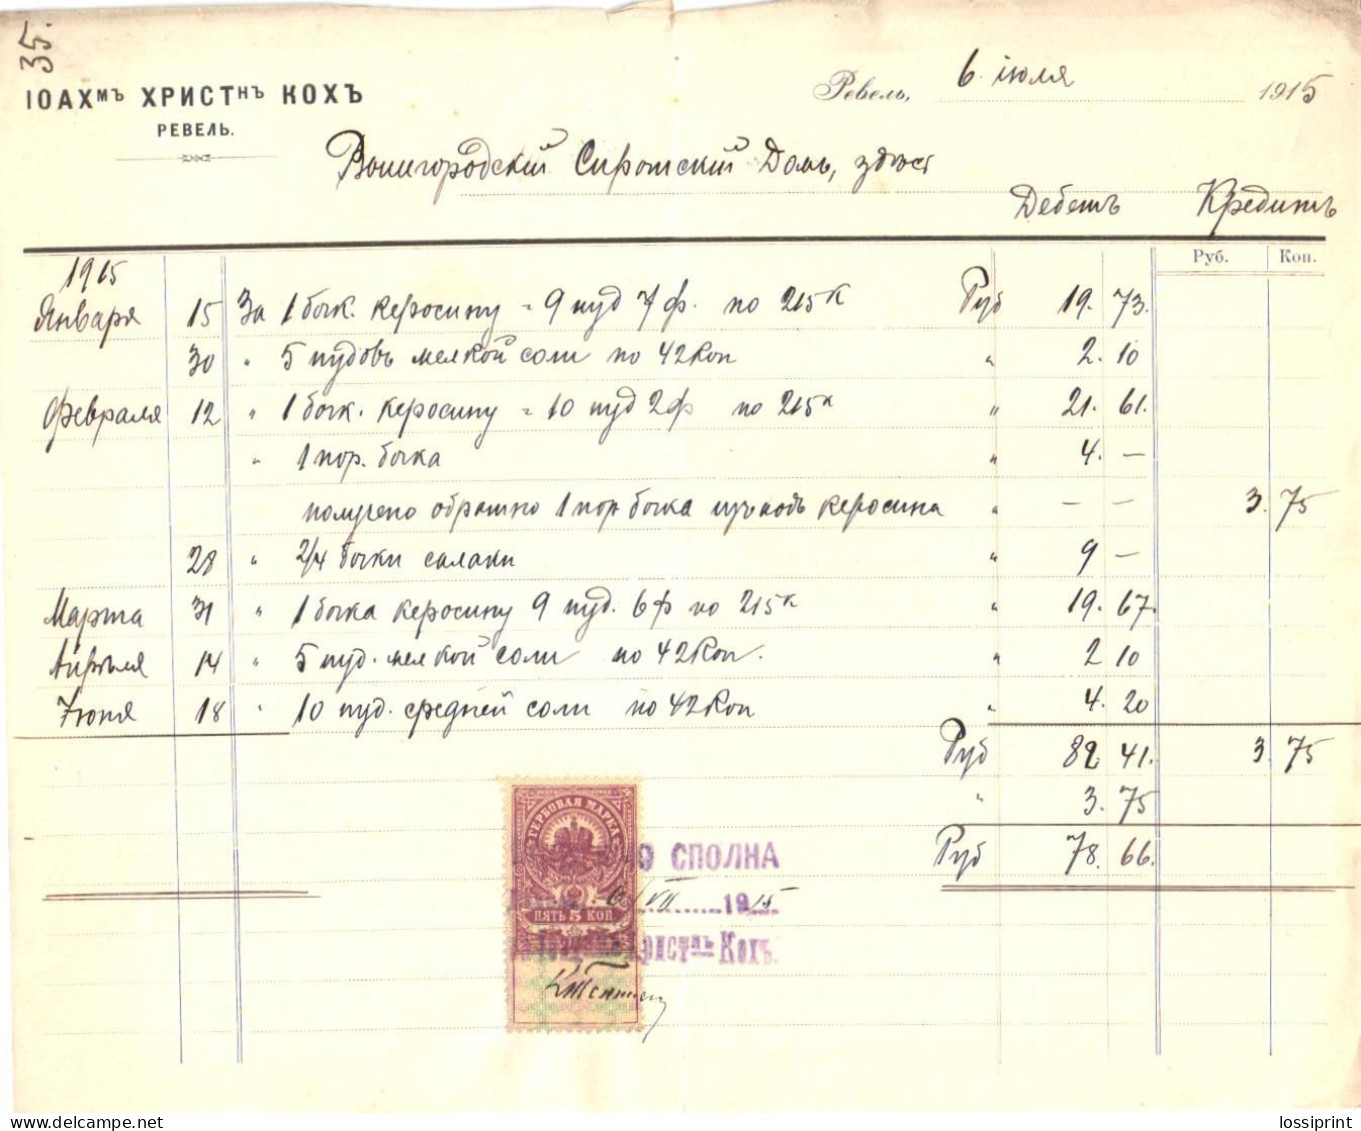 35.
ІОАХМЪ ХРИСТНЪ КОХЪ
РЕВЕЛЬ.
Ревель, 6 іюля 1915
Вышгородскій Сиротскій Домъ, здѣсь
Дебетъ Кредитъ
Руб. Коп.
1915
Января 15 За 1 боч. керосину = 9 пуд 7 ф. по 215 к Руб 19. 73.
30 " 5 пудовъ мелкой соли по 42 Коп " 2. 10
Февраля 12 " 1 боч. керосину = 10 пуд 2 ф по 215 к " 21. 61.
" 1 пор. бочка " 4. —
получено обратно 1 пор бочка изъ подъ керосина " — — 3. 75
28 " 2/4 бочки салаки " 9 —
Марта 31 " 1 бочка керосину 9 пуд. 6 ф по 215 к " 19. 67.
Апрѣля 14 " 5 пуд. мелкой соли по 42 Коп. " 2 10
Іюня 18 " 10 пуд. средней соли по 42 Коп " 4. 20
Руб 82. 41. 3. 75
" 3. 75
Руб 78. 66.
ГЕРБОВАЯ МАРКА
ПЯТЬ 5 КОП.
СПОЛНА
6/VII 1915
Христнъ Кохъ.
lossiprint